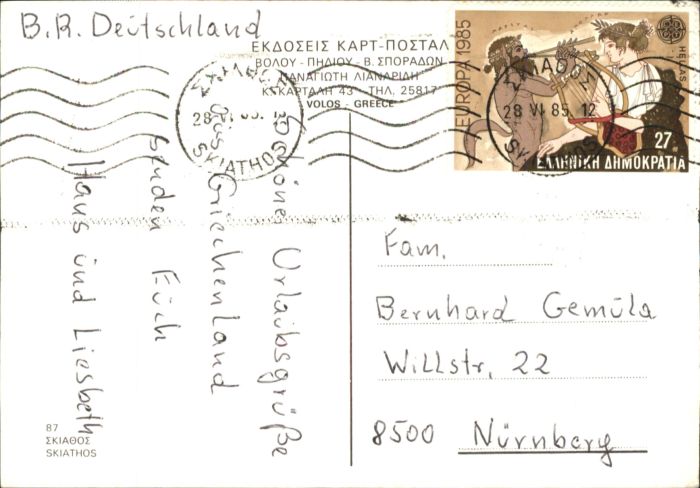 B.R. Deutschland
ΕΚΔΟΣΕΙΣ ΚΑΡΤ-ΠΟΣΤΑΛ
ΒΟΛΟΥ - ΠΗΛΙΟΥ - Β. ΣΠΟΡΑΔΩΝ
ΠΑΝΑΓΙΩΤΗ ΛΙΑΝΑΡΙΔΗ
Κ. ΚΑΡΤΑΛΗ 43 - ΤΗΛ. 25817
VOLOS - GREECE
SKIATHOS
EUROPA 1985
HELLAS
28 VI 85. 12
27
ΕΛΛΗΝΙΚΗ ΔΗΜΟΚΡΑΤΙΑ
Schöne Urlaubsgrüße
aus Griechenland
senden Euch
Hans und Liesbeth
Fam.
Bernhard Gemüla
Willstr. 22
8500 Nürnberg
87
ΣΚΙΑΘΟΣ
SKIATHOS